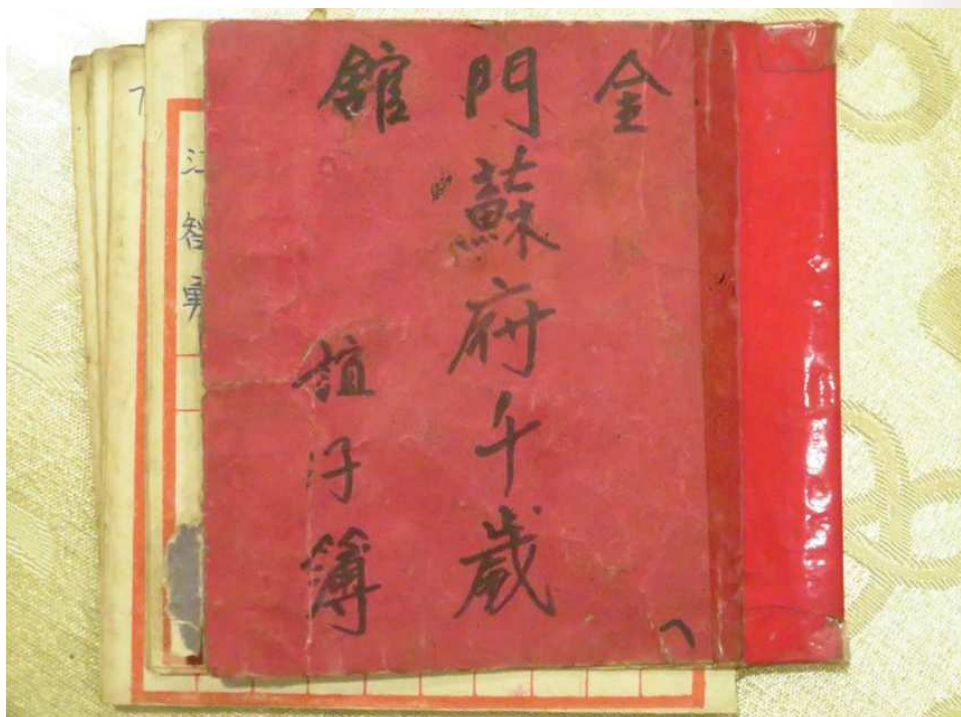 金門館
蘇府千歲
誼仔簿